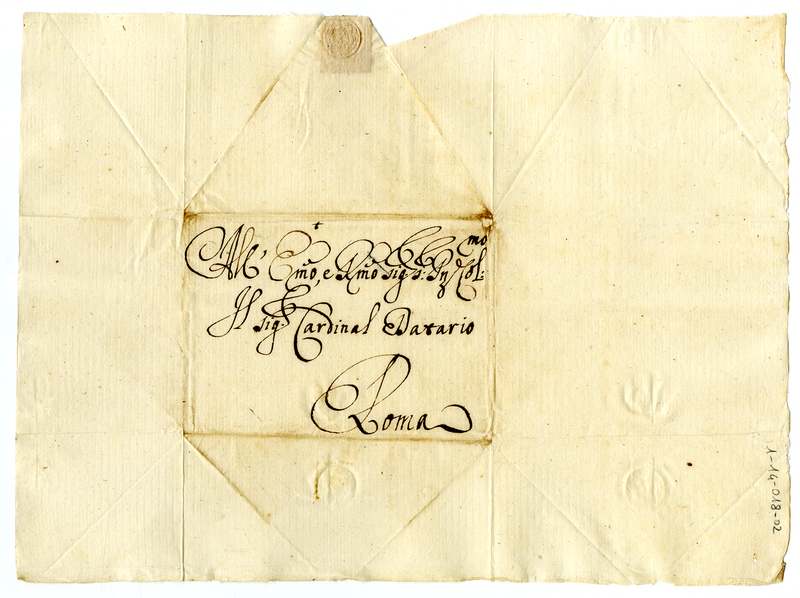 All' Emo, e Rmo Sigr: Pn Col:mo
Il Sigr Cardinal Datario
Roma
1-14-018-02